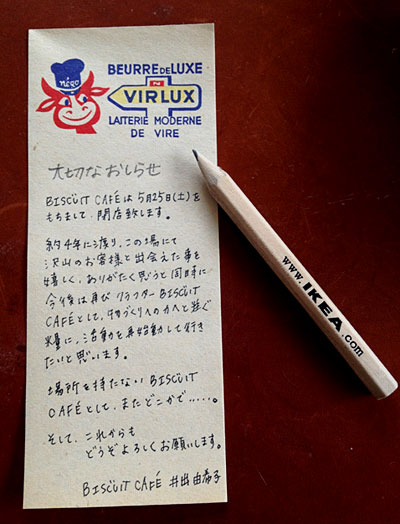 néro
BEURRE DE LUXE
VIRLUX
LAITERIE MODERNE
DE VIRE
大切なおしらせ
BISCÜIT CAFÉは5月25日(土)を
もちまして、閉店致します。
約4年に渡り、この場にて
沢山のお客様と出会えた事を
嬉しく、ありがたく思うと同時に
今後は再び
BISCÜIT
CAFÉとして、物づくりへの力へと注ぐ
に、活動を再始動して行き
たいと思います。
場所を持たない BISCÜIT
CAFÉとして、またどこかで……。
そして、これからも
どうぞよろしくお願いします。
BISCÜIT CAFÉ 井出由希子
www.IKEA.com